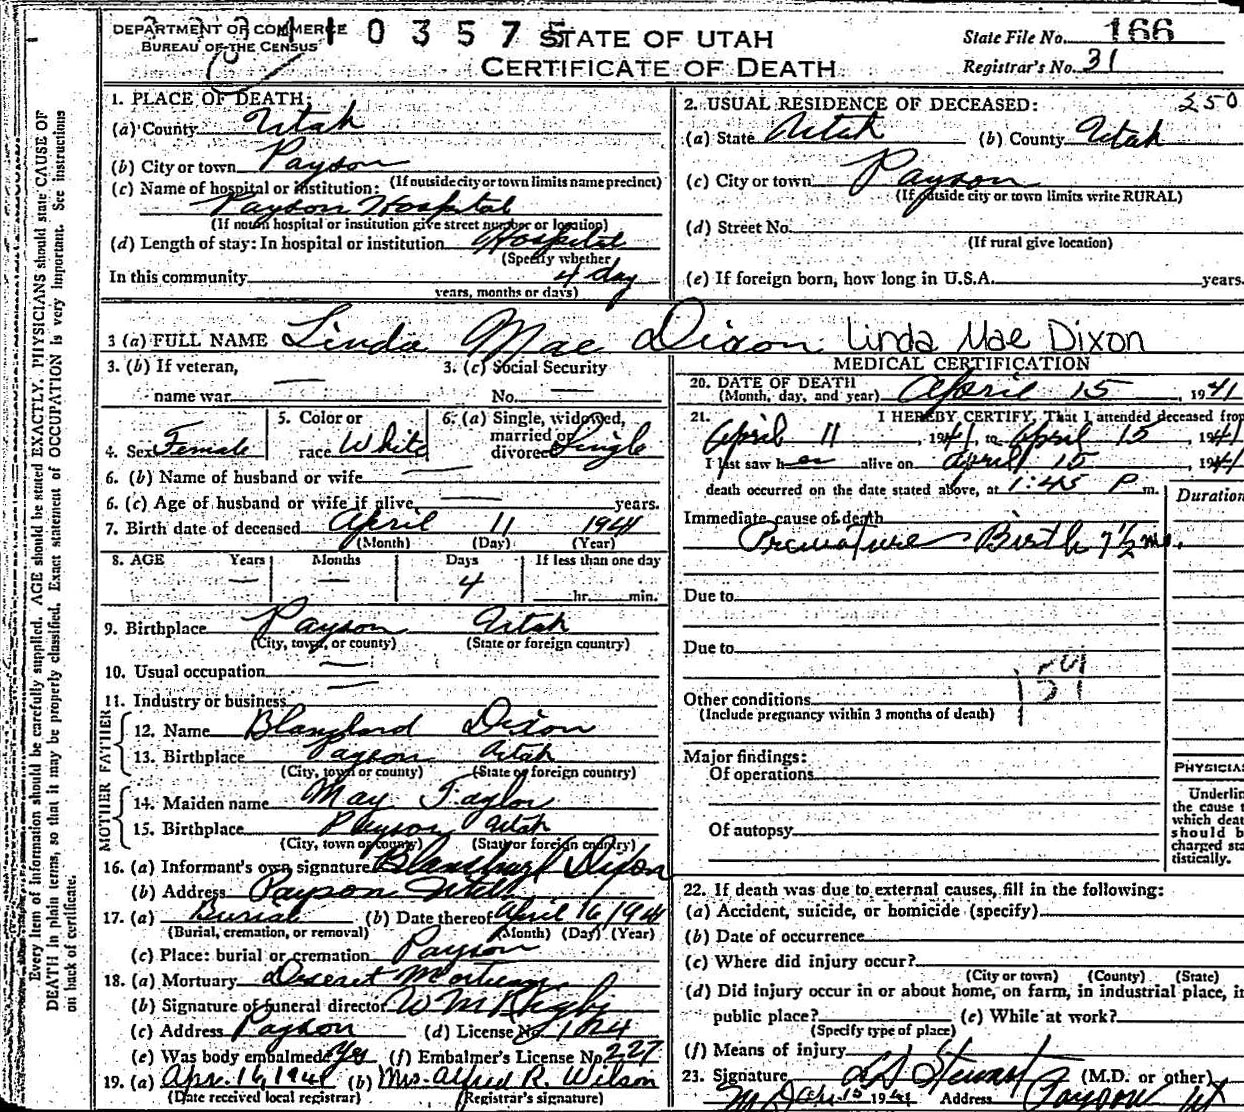 DEPARTMENT OF COMMERCE
BUREAU OF THE CENSUS
1 1 0 3 5 7 5
STATE OF UTAH
CERTIFICATE OF DEATH
State File No. 166
Registrar's No. 31
1. PLACE OF DEATH:
(a) County Utah
(b) City or town Payson
(If outside city or town limits name precinct)
(c) Name of hospital or institution:
Payson Hospital
(If not in hospital or institution give street number or location)
(d) Length of stay: In hospital or institution Hospital
(Specify whether
In this community 4 day
years, months or days)
2. USUAL RESIDENCE OF DECEASED: 250
(a) State Utah (b) County Utah
(c) City or town Payson
(If outside city or town limits write RURAL)
(d) Street No.
(If rural give location)
(e) If foreign born, how long in U.S.A. years.
3 (a) FULL NAME Linda Mae Dixon Linda Mae Dixon
3. (b) If veteran,
name war — 
3. (c) Social Security
No. —
4. Sex Female
5. Color or
race White
6. (a) Single, widowed,
married or
divorced Single
6. (b) Name of husband or wife —
6. (c) Age of husband or wife if alive — years.
7. Birth date of deceased April 11 1941
(Month) (Day) (Year)
8. AGE Years Months Days If less than one day
— — 4 hr. min.
9. Birthplace Payson Utah
(City, town, or county) (State or foreign country)
10. Usual occupation —
11. Industry or business —
FATHER
12. Name Dixon
13. Birthplace Payson Utah
(City, town or county) (State or foreign country)
MOTHER
14. Maiden name May Taylor
15. Birthplace Payson Utah
(City, town or county) (State or foreign country)
16. (a) Informant's own signature Dixon
(b) Address Payson Utah
17. (a) Burial (b) Date thereof April 16 1941
(Burial, cremation, or removal) (Month) (Day) (Year)
(c) Place: burial or cremation Payson
18. (a) Mortuary Deseret Mortuary
(b) Signature of funeral director
(c) Address Payson (d) License No. 1024
(e) Was body embalmed? Yes (f) Embalmer's License No. 227
19. (a) Apr. 16, 1941 (b) Mrs. Alfred R. Wilson
(Date received local registrar) (Registrar's signature)
MEDICAL CERTIFICATION
20. DATE OF DEATH
(Month, day, and year) April 15, 1941
21. I HEREBY CERTIFY, That I attended deceased from
April 11, 1941, to April 15, 1941
I last saw her alive on April 15, 1941
death occurred on the date stated above, at 1:45 P m.
Duration
Immediate cause of death
Premature Birth 7½ mo.
Due to
Due to
159
Other conditions
(Include pregnancy within 3 months of death)
Major findings:
Of operations
Of autopsy
PHYSICIAN
Underline
the cause t
which deat
should b
charged sta
tistically.
22. If death was due to external causes, fill in the following:
(a) Accident, suicide, or homicide (specify)
(b) Date of occurrence
(c) Where did injury occur?
(City or town) (County) (State)
(d) Did injury occur in or about home, on farm, in industrial place, in
public place? (e) While at work?
(Specify type of place)
(f) Means of injury
23. Signature L D Stewart (M.D. or other)
M.D. Apr 15 1941 Address Payson Ut
Every item of information should be carefully supplied. AGE should be stated EXACTLY. PHYSICIANS should state CAUSE OF
DEATH in plain terms, so that it may be properly classified. Exact statement of OCCUPATION is very important. See instructions
on back of certificate.